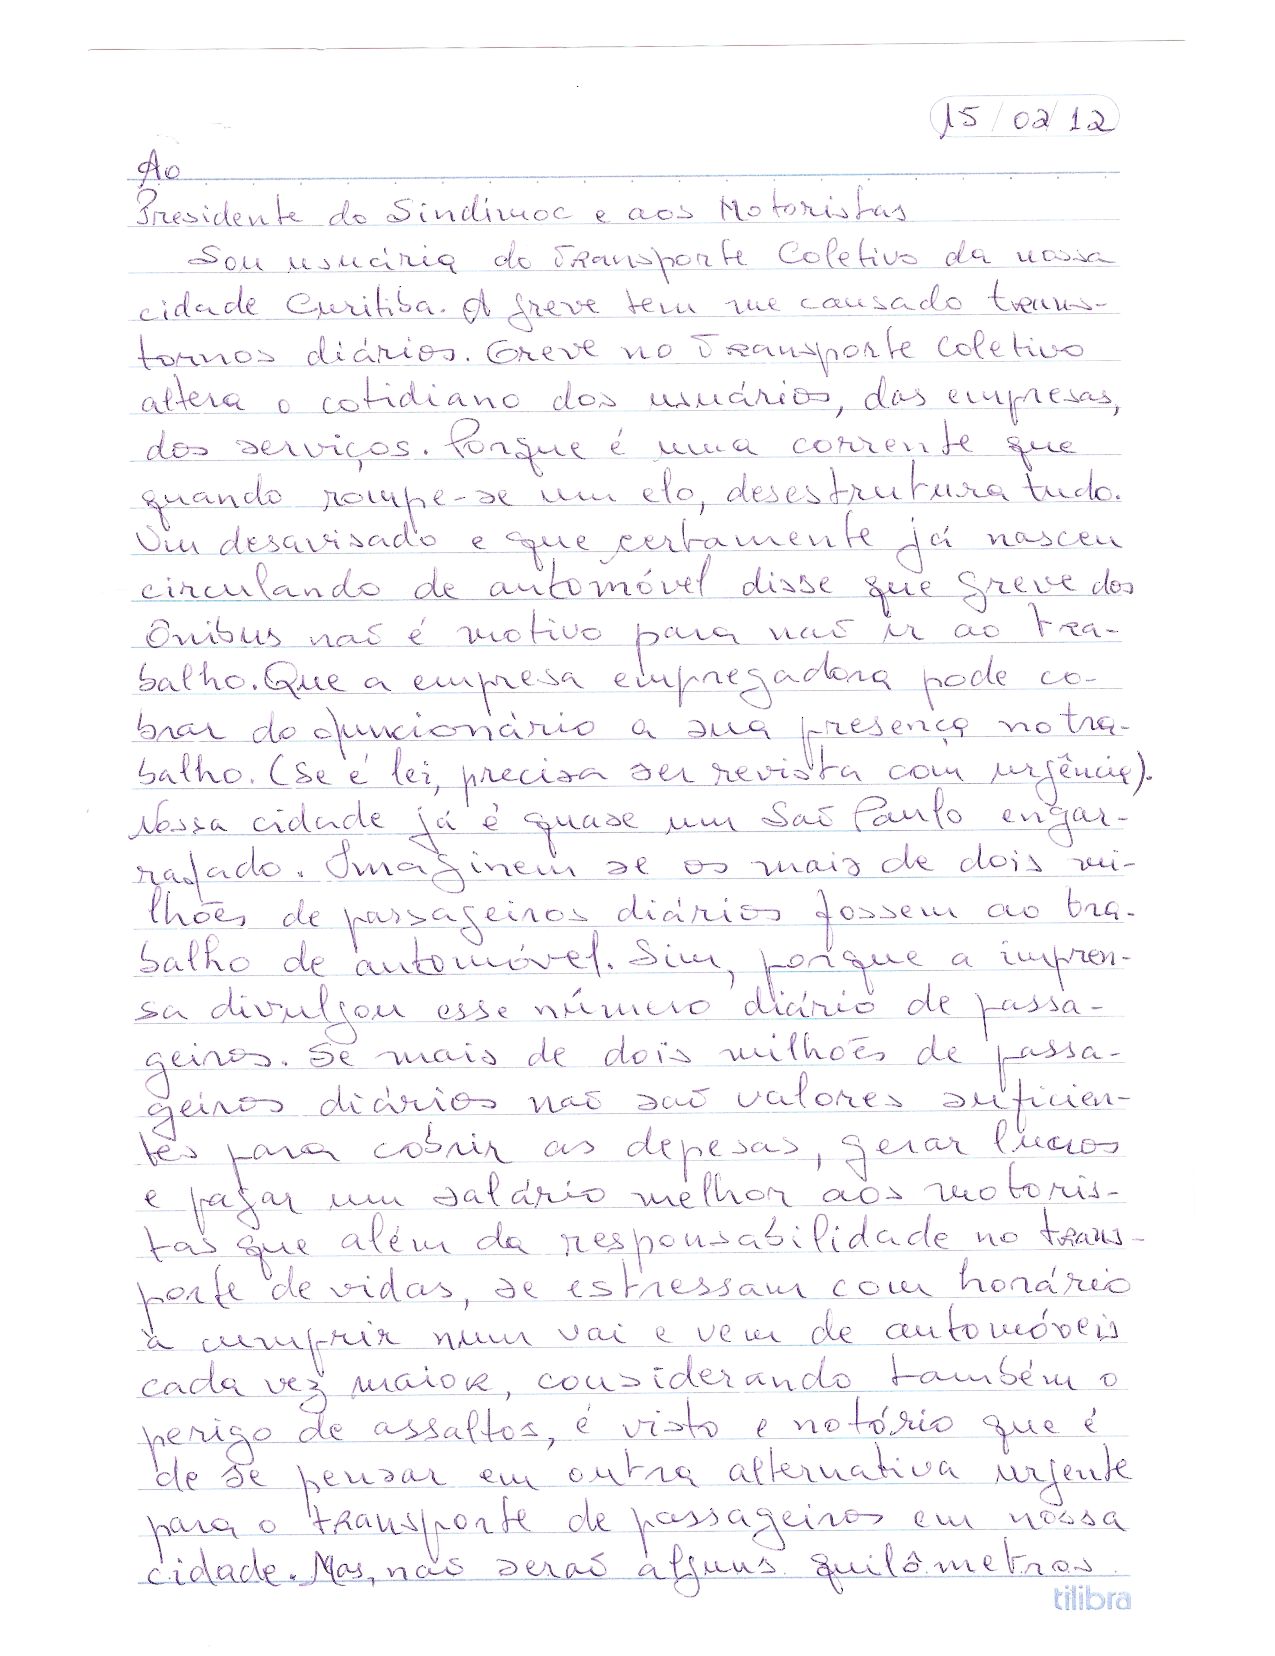 15/02/12
Ao
Presidente do Sindimoc e aos Motoristas
Sou usuária do Transporte Coletivo da nossa
cidade Curitiba. A greve tem me causado trans-
tornos diários. Greve no Transporte coletivo
altera o cotidiano dos usuários, das empresas,
dos serviços. Porque é uma corrente que
quando rompe-se um elo, desestrutura tudo.
Um desavisado e que certamente já nasceu
circulando de automóvel disse que greve dos
ônibus não é motivo para não ir ao tra-
balho. Que a empresa empregadora pode co-
brar do funcionário a sua presença no tra-
balho. (Se é lei, precisa ser revista com urgência).
Nossa cidade já é quase um São Paulo engar-
rafado. Imaginem se os mais de dois mi-
lhões de passageiros diários fossem ao tra-
balho de automóvel. Sim, porque a impren-
sa divulgou esse número diário de passa-
geiros. Se mais de dois milhões de passa-
geiros diários não são valores suficien-
tes para cobrir as depesas, gerar lucros
e pagar um salário melhor aos motoris-
tas que além da responsabilidade no trans-
porte de vidas, se estressam com horário
à cumprir num vai e vem de automóveis
cada vez maior, considerando também o
perigo de assaltos, é visto e notório que é
de se pensar em outra alternativa urgente
para o transporte de passageiros em nossa
cidade. Mas, não serão alguns quilômetros
tilibra